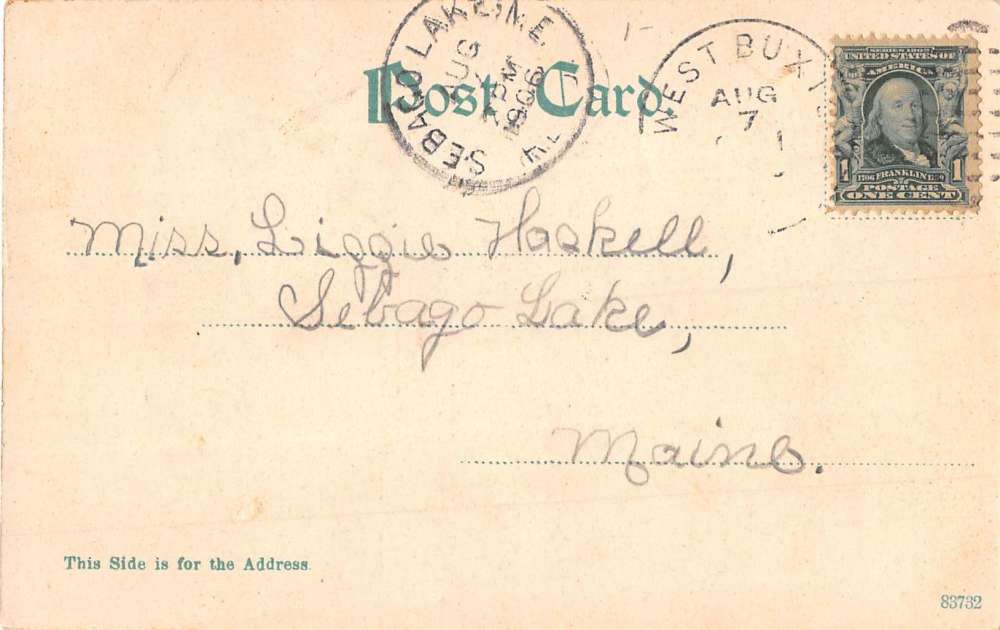 Post Card
SEBAGO LAKE, ME.
AUG
7
PM
1906
WEST BUX
AUG
7
SERIES 1902
UNITED STATES OF
AMERICA
1 1
FRANKLIN
POSTAGE
ONE CENT
Miss, Lizzie Haskell,
Sebago Lake,
Maine.
This Side is for the Address.
83732